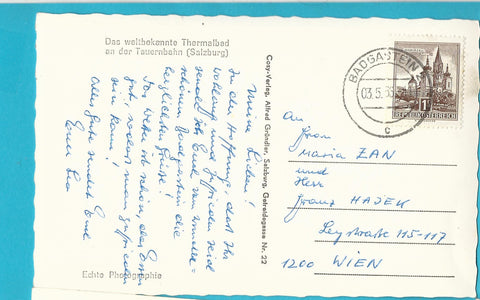 Das weltbekannte Thermalbad
an der Tauernbahn (Salzburg)
Meine Lieben!
In der Hoffnung, daß Ihr
wohlauf und zufrieden seid
sende ich Euch vom wunder-
schönen Badgastein die
herzlichsten Grüße!
Das Wetter ist schön, das Essen
gut, sodass man zufrieden
sein kann!
Alles gute sendet Euch
Echte Photographie
Cosy-Verlag, Alfred Gründler, Salzburg, Getreidegasse Nr. 22
BADGASTEIN
03.5.
c
1
REPUBLIK ÖSTERREICH
An
Frau
Maria ZAN
und
Herr
Franz HAJEK
Leystraße 115-117
1200 WIEN